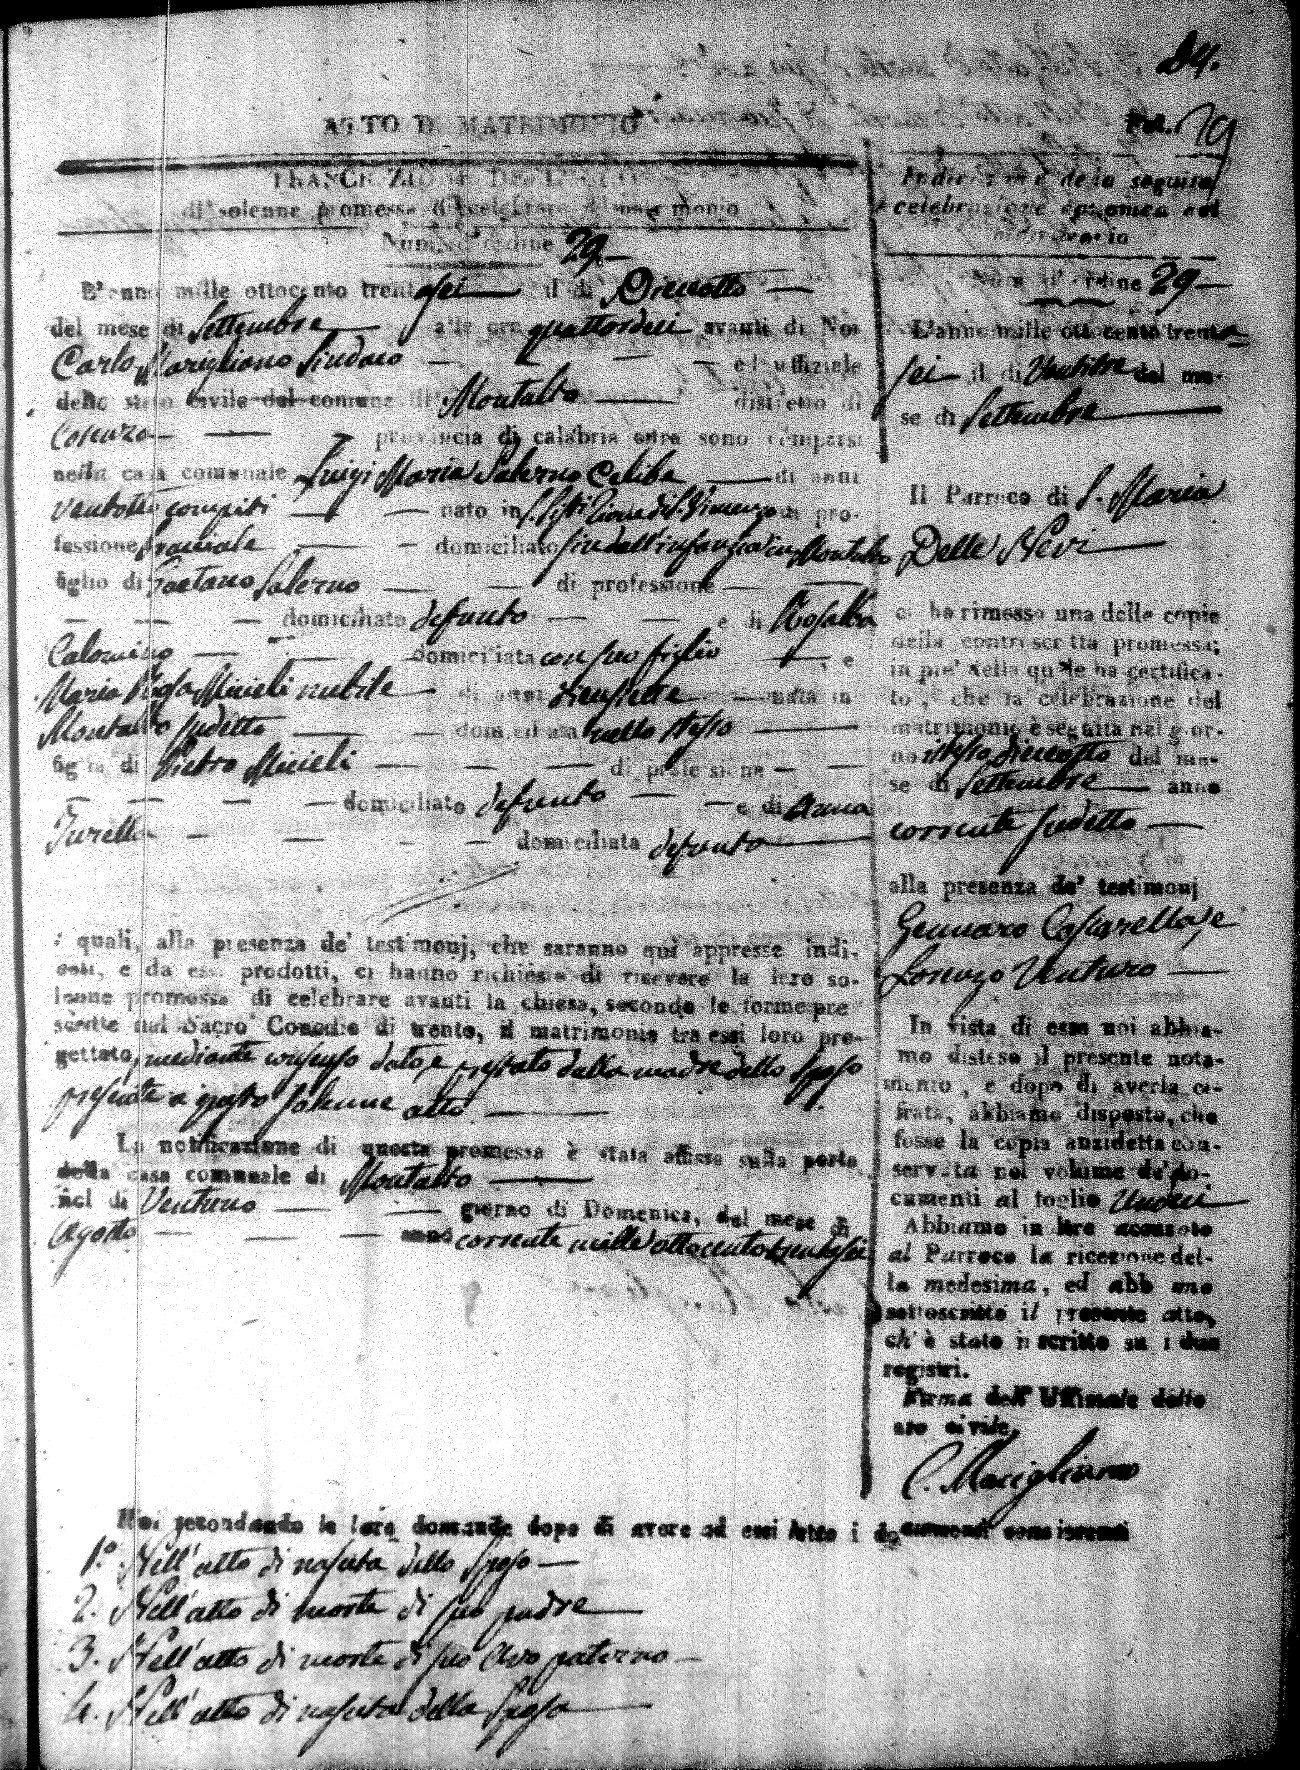 84.
ATTO DI MATRIMONIO
Fol. 79
TRASCRIZIONE DELL'ATTO
di solenne promessa di celebrare il matrimonio
Num. d'ordine 29
L'anno mille ottocento trentasei il dì Dieciotto
del mese di Settembre alle ore quattordici avanti di Noi
Carlo Marigliano Sindaco ed uffiziale
dello stato civile del comune di Montalto distretto di
Cosenza provincia di calabria citra sono comparsi
nella casa comunale Luigi Maria Salerno Celibe di anni
ventotto compiti nato in S. Sisti di pro-
fessione domiciliato fin dall'infanzia in Montalto
figlio di Gaetano Salerno di professione
domiciliato defunto e di Rosalba
Calomino domiciliata con suo figlio, e
Maria Rosa Micieli nubile di anni diecisette nata in
Montalto sudetto domiciliata nello stesso
figlia di Pietro Micieli di professione
domiciliato defunto e di Anna
Turella domiciliata defunta
i quali, alla presenza de' testimonj, che saranno qui appresso indi-
cati, e da essi prodotti, ci hanno richiesto di ricevere la loro so-
lenne promessa di celebrare avanti la chiesa, secondo le forme pre
scritte dal Sacro Concilio di trento, il matrimonio tra essi loro pro-
gettato, mediante consenso dato, e prestato dalla madre dello Sposo
presente a questo solenne atto
La notificazione di questa promessa è stata affissa sulla porta
della casa comunale di Montalto
nel dì Ventuno giorno di Domenica, del mese di
Agosto anno corrente mille ottocento trentasei
Indicazione della seguita
celebrazione canonica del
matrimonio
Num. d'ordine 29
L'anno mille ottocento trenta
sei il dì Ventitre del me-
se di Settembre
Il Parroco di S. Maria
Delle Nevi
ci ha rimesso una delle copie
della controscritta promessa;
in piè della quale ha certifica-
to, che la celebrazione del
matrimonio è seguita nel gior-
no stesso dieciotto del me-
se di Settembre anno
corrente sudetto
alla presenza de' testimonj
Gennaro Casciarello, e
Lorenzo Venturo
In vista di essa noi abbia-
mo disteso il presente nota-
mento, e dopo di averla ci-
frata, abbiamo disposto, che
fosse la copia anzidetta con-
servata nel volume de' do-
cumenti al foglio Undici
Abbiamo in oltre accusato
al Parroco la ricezione del-
la medesima, ed abbiamo
sottoscritto il presente atto,
ch'è stato inscritto su i due
registri.
Firma dell'Uffiziale dello
stato civile.
C. Marigliano
Noi secondando le loro domande dopo di avere ad essi letto i documenti consistenti
1.° Nell'atto di nascita dello Sposo
2. Nell'atto di morte di suo padre
3. Nell'atto di morte di suo Avo paterno
4. Nell'atto di nascita della Sposa